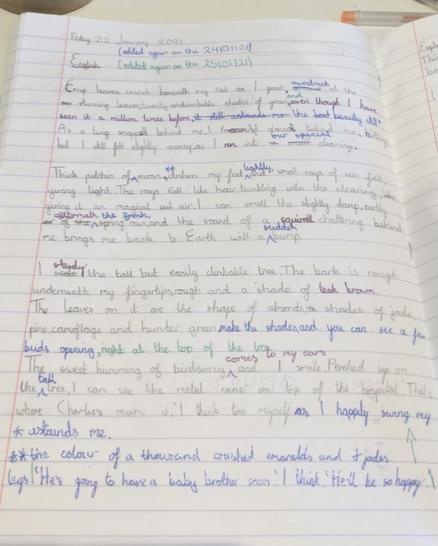 Friday 22 January 2021
(edited again on the 24/01/21)
English (edited again on the 25/01/21)
Crisp leaves crunch beneath my feet as I gaze, awestruck at the
stunning leaves, twenty undescribable shades of green, and even though I have
seen it a million times before, it still astounds me the best beauty still*
As a twig snapped behind me, I behind me, nothing
but I still felt slightly worry as I run into our special clearing.
Thick patches of moss ** cushion my feet and lightly, small rays of sun fall,
giving light. The rays fall like hair, tumbling into the clearing,
giving it an magical out air. I can smell the slightly damp, earthy
aftermath the fresh, spring rain, and the sound of a squirrel chattering behind
me brings me back to Earth with a sudden bump.
I study the tall but easily climbable tree. The bark is rough
underneath my fingertips, rough and a shade of dark brown.
The leaves on it are the shape of almonds, shades of jade,
pine, camoflage and hunter green make the shades, and you can see a few
buds opening, right at the top of the tree.
The sweet humming of birdsong comes to my ears and I smile. Perched up on
the tall tree, I can see the metal cone on top of the hospital. 'That's
where Charlie's mum is.' I think too myself as I happily swing my
* astounds me.
** the colour of a thousand crushed emeralds and jades
legs. 'He's going to have a baby brother soon.' I think. 'He'll be so happy.'